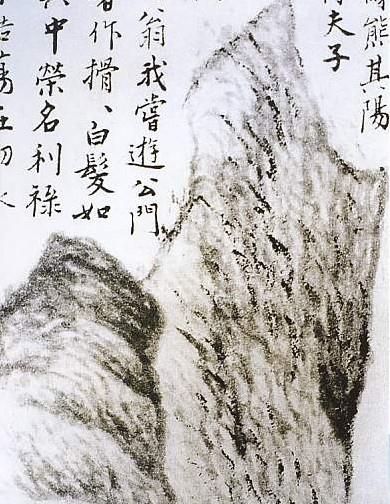 熊其陽
夫子
翁我嘗遊公門
作搰、白髮如
中榮名利祿